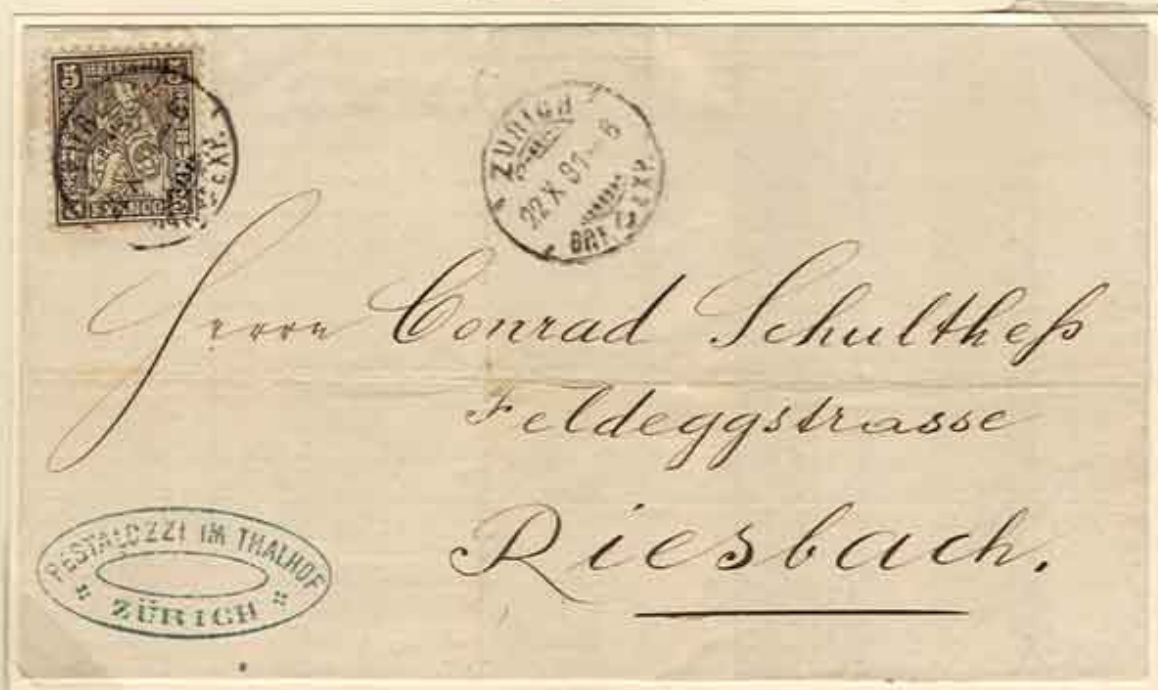 5 5
FRANCO
ZÜRICH
22. X. 81 – 6
BRF. EXP.
Herrn Conrad Schultheß
Feldeggstrasse
Riesbach.
PESTALOZZI IM THALHOF
ZÜRICH